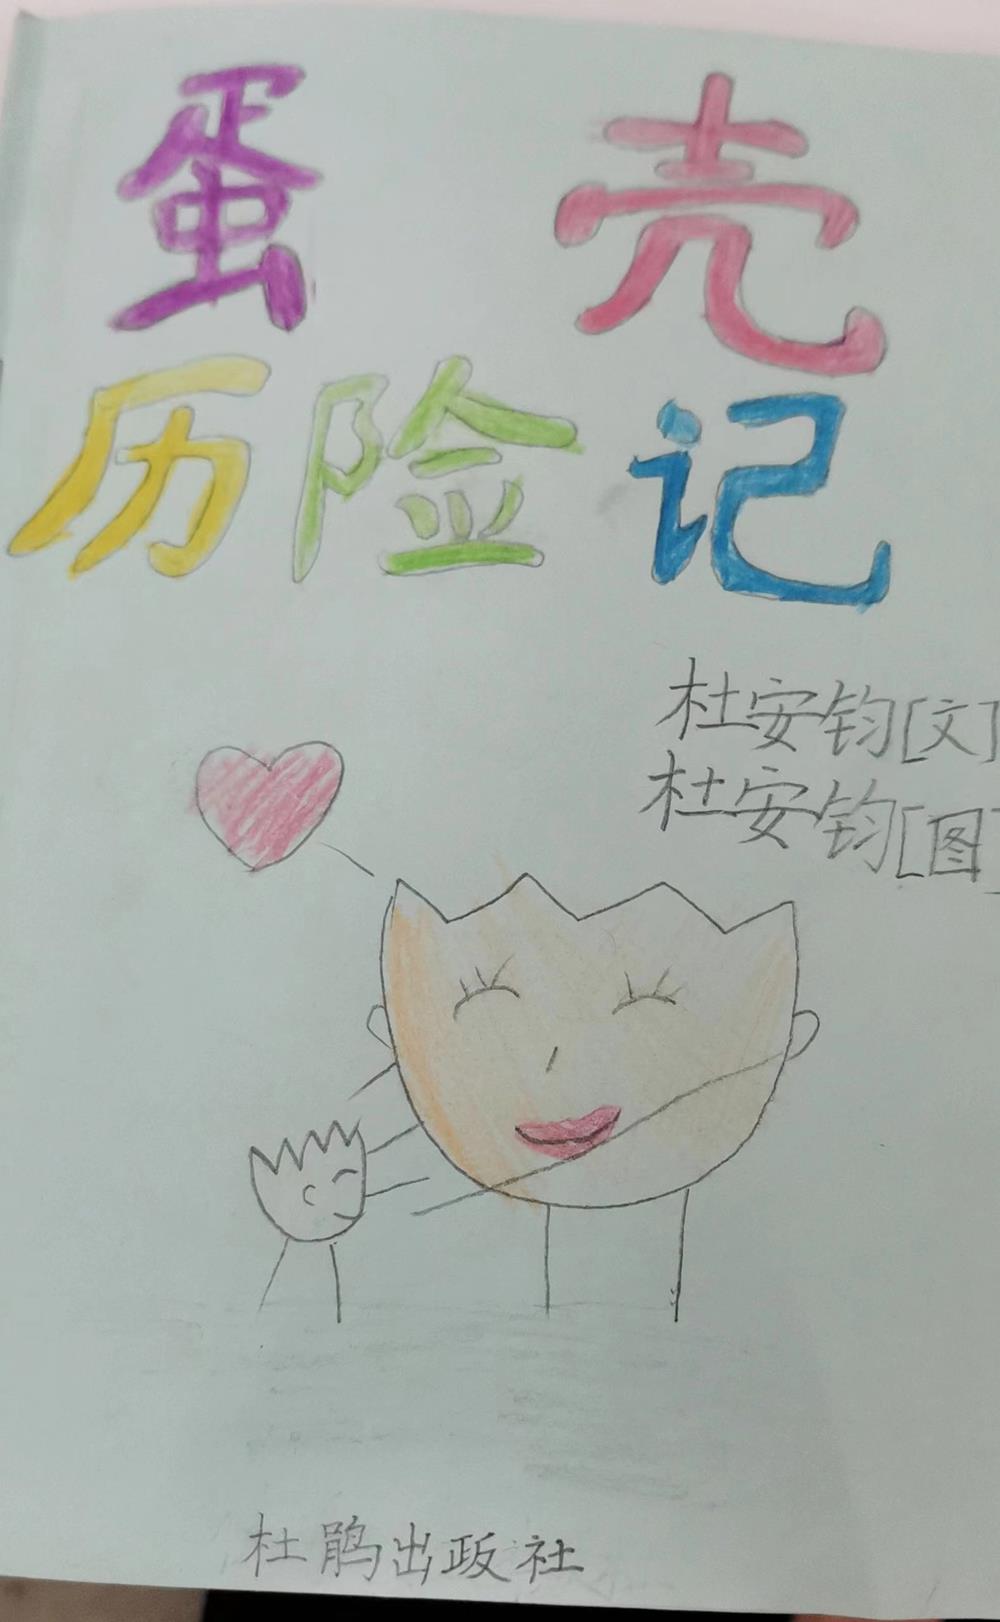 蛋壳
历险记
杜安钧[文]
杜安钧[图]
杜鹃出版社